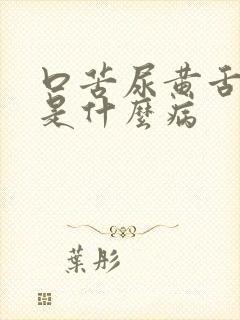 口苦尿黄舌
是什麼病
葉彤